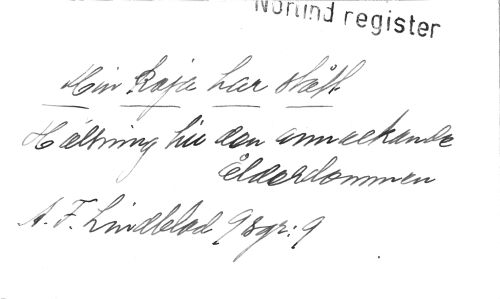 Nomind register
Min Kaja har stått
Hälsning till den annalkande
Ålderdommen
A. F. Lindblad 9 sgr: 9